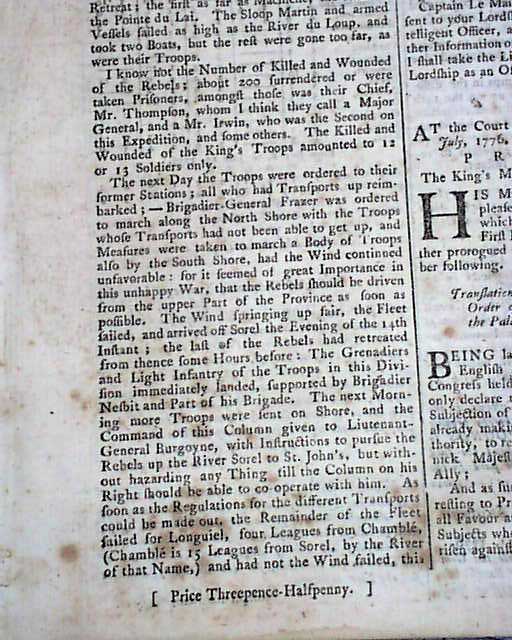 Retreat; the first as far as
the Pointe du Lai. The Sloop Martin and armed
Vessels sailed as high as the River du Loup, and
took two Boats, but the rest were gone too far, as
were their Troops.
I know not the Number of Killed and Wounded
of the Rebels; about 200 surrendered or were
taken Prisoners, amongst those was their Chief,
Mr. Thompson, whom I think they call a Major
General, and a Mr. Irwin, who was the Second on
this Expedition, and some others. The Killed and
Wounded of the King's Troops amounted to 12
or 13 Soldiers only.
The next Day the Troops were ordered to their
former Stations; all who had Transports up reim-
barked; — Brigadier-General Frazer was ordered
to march along the North Shore with the Troops
whose Transports had not been able to get up, and
Measures were taken to march a Body of Troops
also by the South Shore, had the Wind continued
unfavorable: for it seemed of great Importance in
this unhappy War, that the Rebels should be driven
from the upper Part of the Province as soon as
possible. The Wind springing up fair, the Fleet
sailed, and arrived off Sorel the Evening of the 14th
Instant; the last of the Rebels had retreated
from thence some Hours before: The Grenadiers
and Light Infantry of the Troops in this Divi-
sion immediately landed, supported by Brigadier
Nesbit and Part of his Brigade. The next Morn-
ing more Troops were sent on Shore, and the
Command of this Column given to Liutenant-
General Burgoyne, with Instructions to pursue the
Rebels up the River Sorel to St. John's, but with-
out hazarding any Thing till the Column on his
Right should be able to co-operate with him. As
soon as the Regulations for the different Transports
could be made out, the Remainder of the Fleet
sailed for Longuiel, four Leagues from Chamblé,
(Chamblé is 15 Leagues from Sorel, by the River
of that Name,) and had not the Wind failed, this
[ Price Threepence-Halfpenny. ]
Captain Le Ma
sent to your Lordsh
telligent Officer, a
ther Information o
I shall take the Li
Lordship as an Of
AT the Court
July, 1776,
P R
The King's M
HIS M
please
which
First
ther prorogued
ber following.
Translation
Order o
the Pala
BEING la
English
Congress held
only declare t
Subjection of
already makin
thority, to re
nick Majest
Ally;
And as su
resting to Pr
all Favour a
Subjects who
risen against